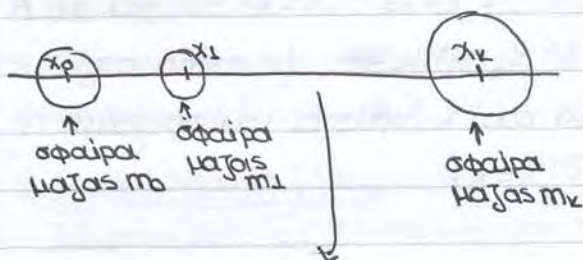 x₀ x₁ x_κ
σφαίρα μάζας m₀
σφαίρα μάζας m₁
σφαίρα μάζας m_κ